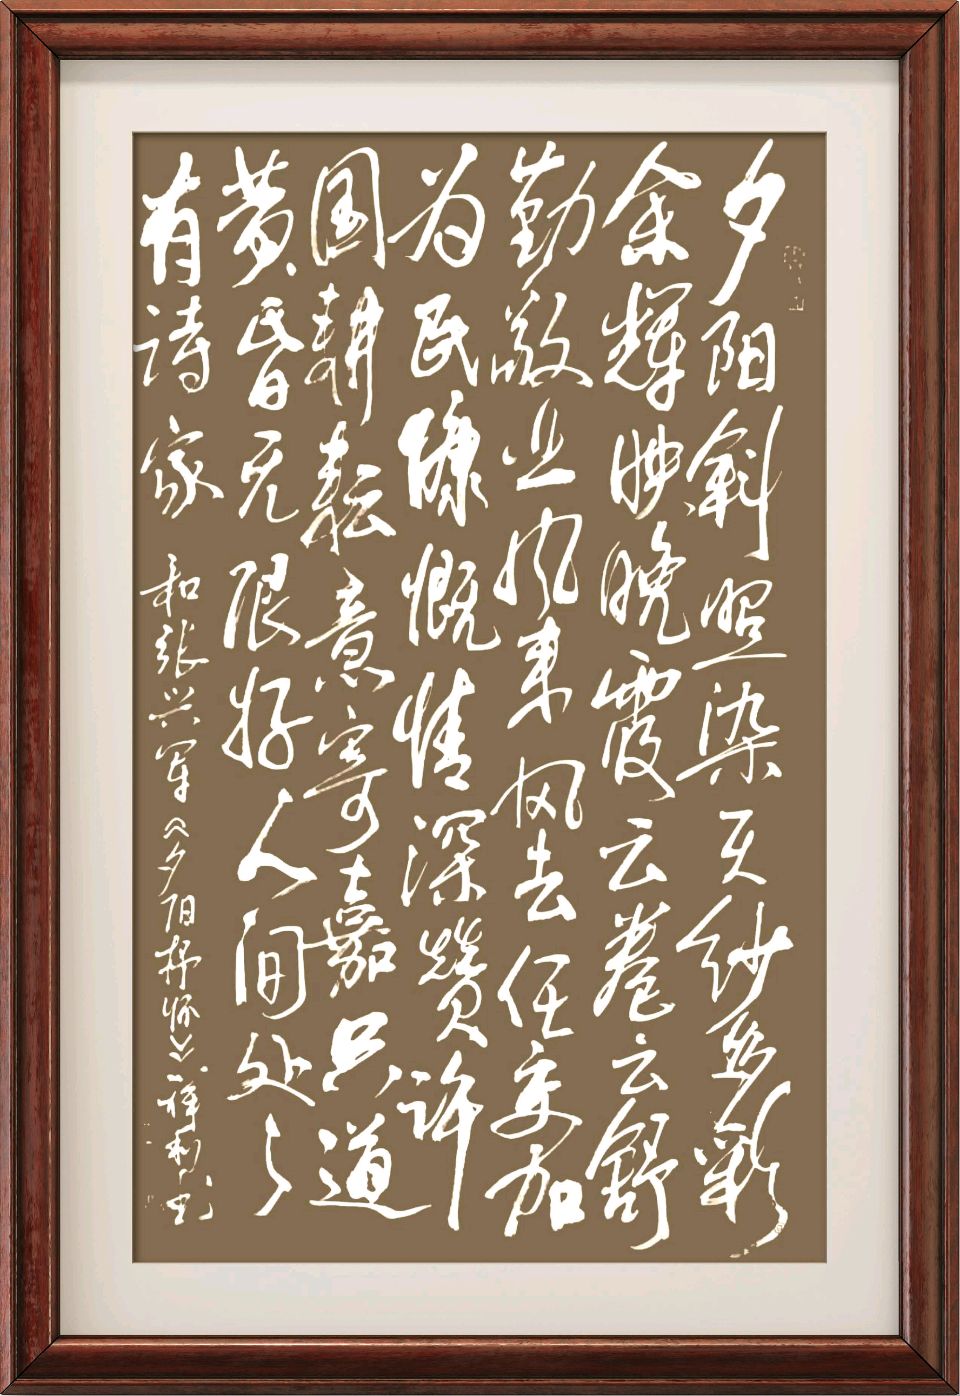 夕阳斜照染天纱五彩
余辉映晚霞云卷云舒
勤敬业风来风去任交加
为民慷慨情深赞许
国耕耘意寄嘉只道
黄昏无限好人间处々
有诗家 和张兴军《夕阳抒怀》祥利书